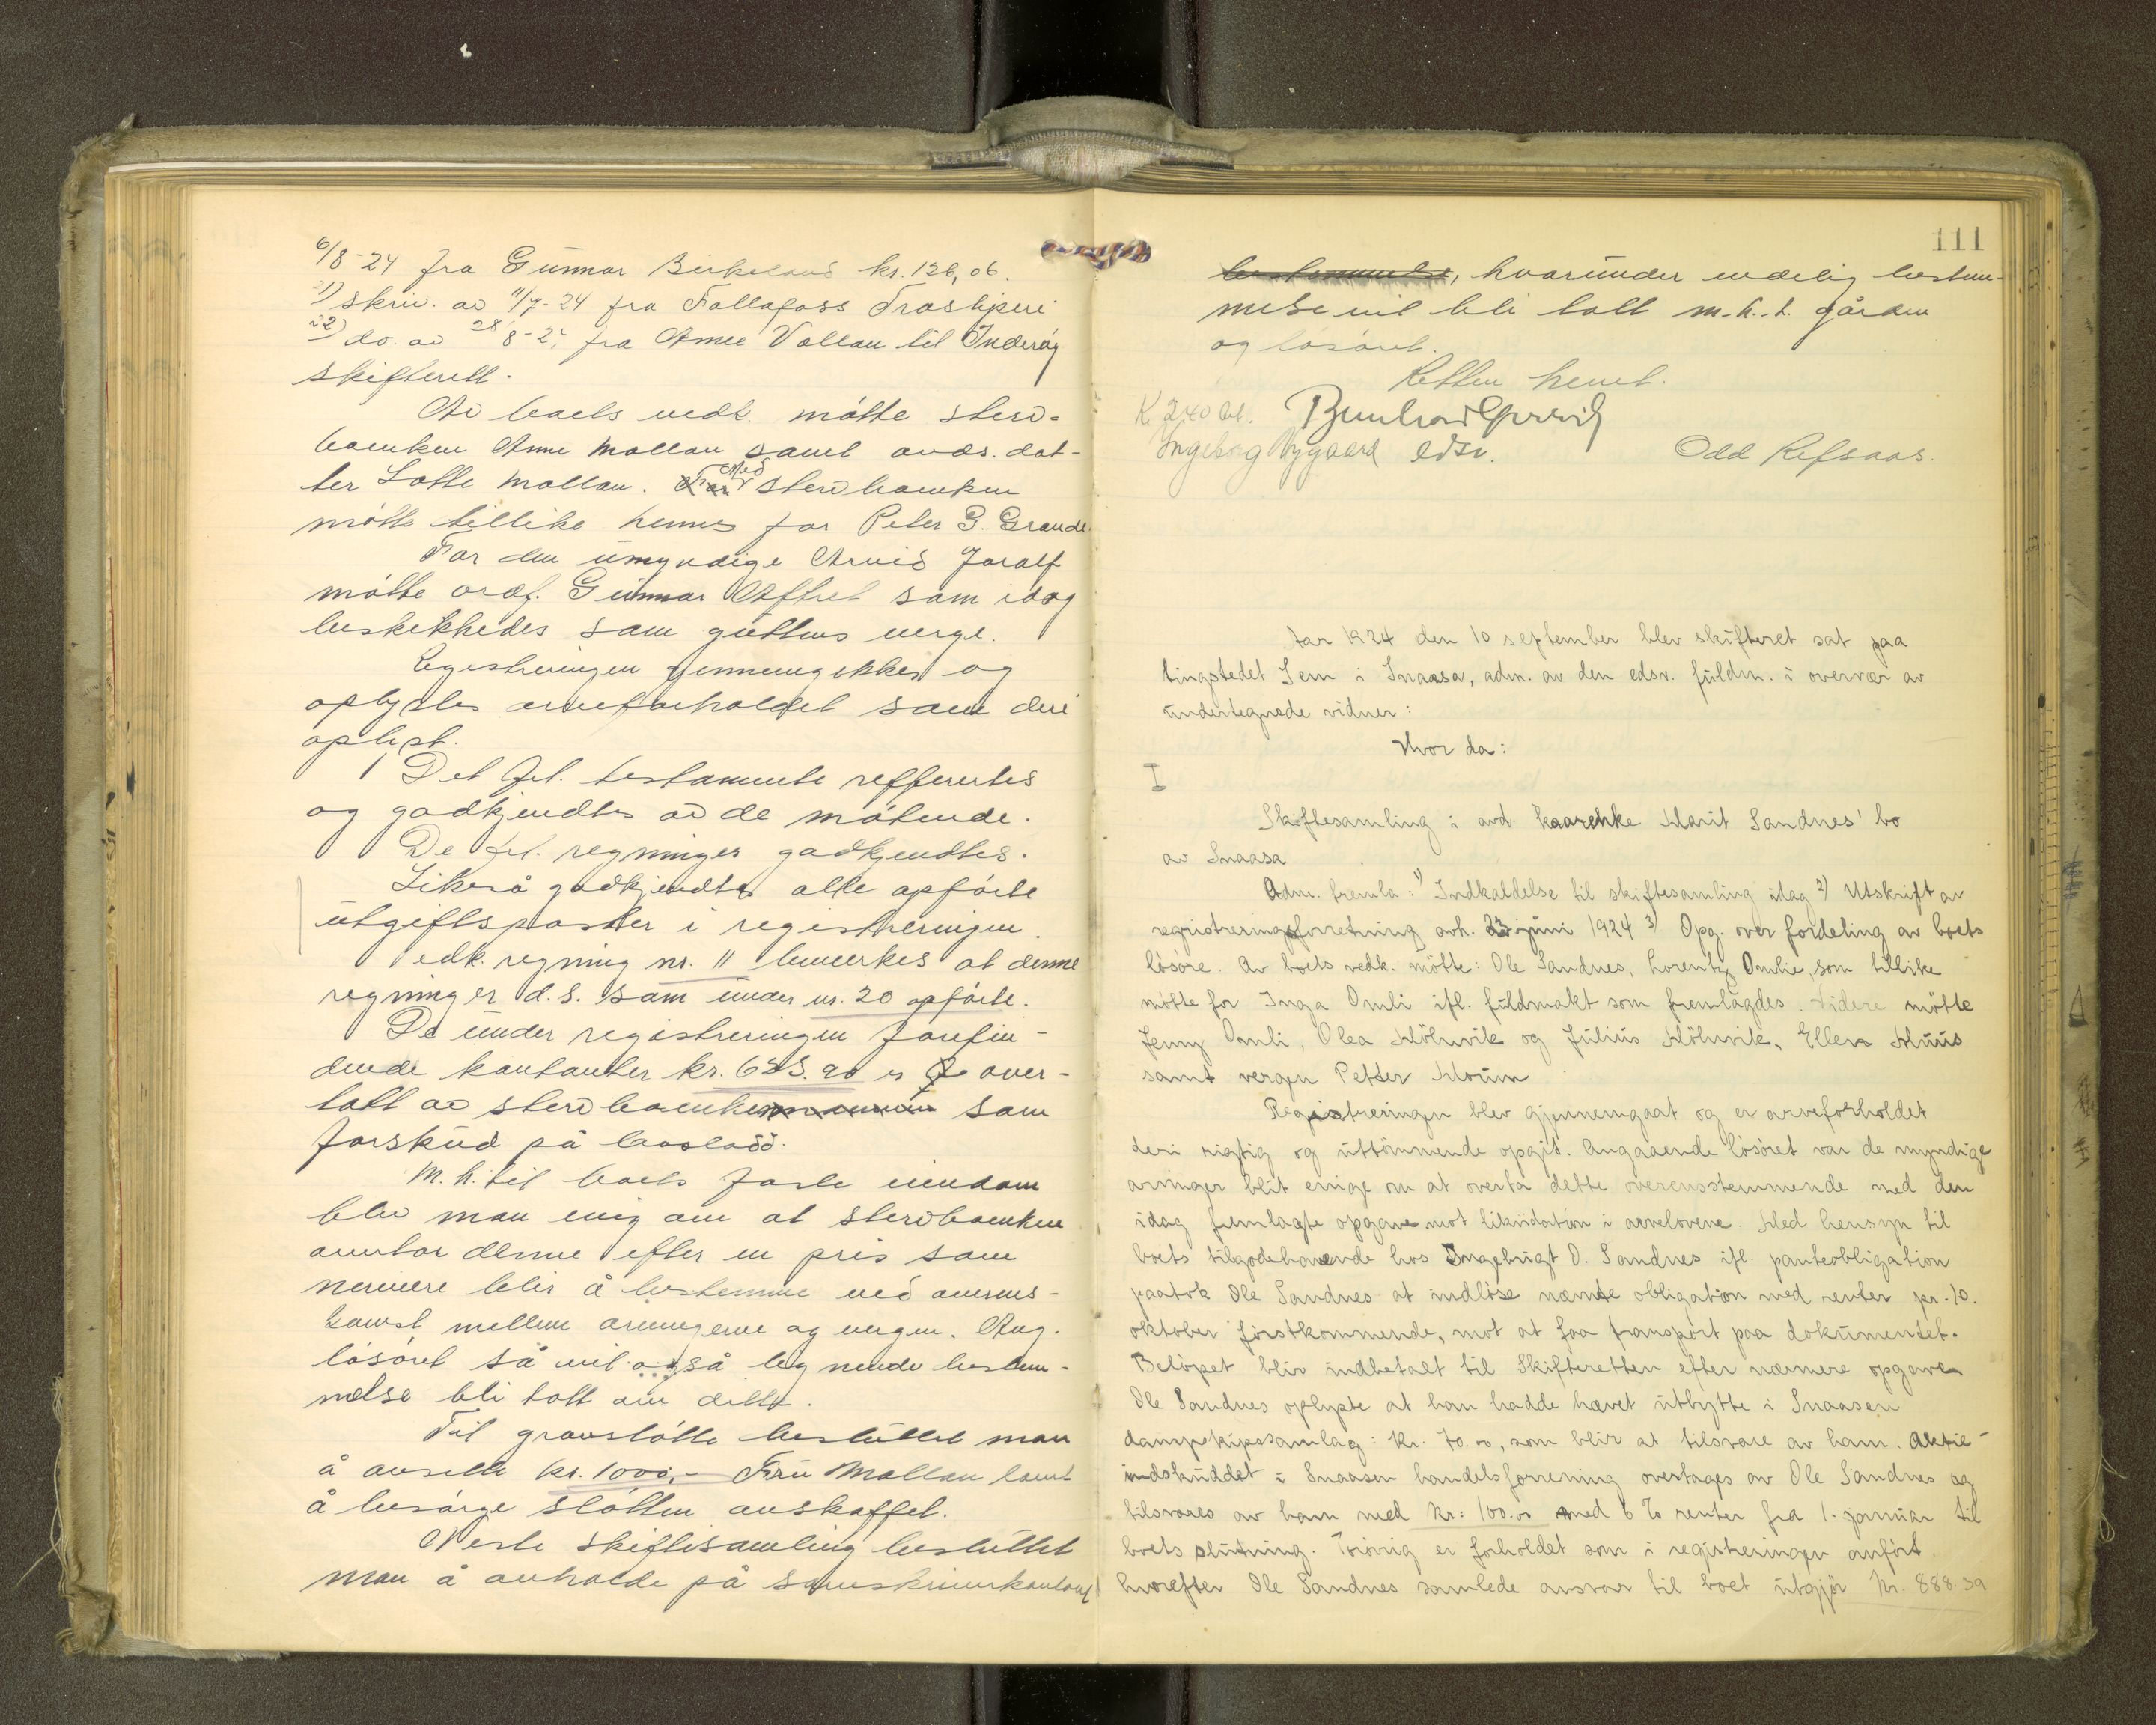 6/8-24 fra Gunnar Birkeland kr. 126,06.
21) skriv. av 11/7-24 fra Follafoss Træsliperi
22) do. av 28/8-24 fra Anne Mollan til Inderøy
skifterett.
Av boets vedk. møtte sterv-
boenken Anne Mollan samt avds. dat-
ter Lotte Mollan. Med stervboenken
møtte tillike hennes far Peter G. Grande.
For den umyndige Arvid Joralf
møtte ordf. Gunnar Aftret som idag
beskikkedes som guttens verge.
Registreringen gjennemgikkes og
oplystes arveforholdet som deri
oplyst.
Det frl. testamente reffertes
og godkjendtes av de møtende.
De frl. regninger godkjendtes.
Likeså godkjendtes alle opførte
utgiftsposter i registreringen.
Vedk. regning nr. 11 bemerkes at denne
regning er d. s. som under nr. 20 opførte.
De under registreringen forefin-
dende kontanter kr. 623.90 er over-
tatt av stervboenken som
forskud på boslodd.
M. h. til boets faste eiendom
blev man enig om at stervboenken
overtar denne efter en pris som
nermere blir å bestemme ved overens-
komst mellem arvingerne og vergen. Ang.
løsøret så vil også lignende bestem-
melse bli tatt om dette.
Til gravstøtte besluttet man
å avsette kr. 1000,- Fru Mollan lovet
å besørge støtten anskaffet.
Neste skiftesamling besluttet
man å avholde på sorenskriverkontoret
111
bestemmelse, hvorunder endelig bestem-
melse vil bli tatt m.h.t. gården
og løsøret.
Retten hevet.
K. 240 bet.
Ingeborg Nygaard edsv. Odd Refsaas.
Aar 1924 den 10 september blev skifteret sat paa
tingstedet Sem i Snaasa, adm. av den edsv. fuldm. i overvær av
undertegnede vidner:
Hvor da:
I
Skiftesamling i avd. kaarenke Marit Sandnes' bo
av Snaasa
Adm. fremla: 1) Indkaldelse til skiftesamling idag 2) Utskrift av
registreringsforretning avh. 23 juni 1924 3) Opg. over fordeling av boets
løsøre. Av boets vedk. møtte: Ole Sandnes, Lorentz Omlie, som tillike
møtte for Inga Omli ifl. fuldmakt som fremlagdes. Videre møtte
Jenny Omli, Olea Mølnvik og Julius Mølnvik, Ellen Muus
samt vergen Petter Moum
Registreringen blev gjennemgaat og er arveforholdet
deri rigtig og uttømmende opgit. Angaaende løsøret var de myndige
arvinger blit enige om at overta dette overensstemmende med den
idag fremlagte opgave mot likvidation i arvelovene. Med hensyn til
boets tilgodehavende hos Ingebrigt O. Sandnes ifl. panteobligation
paatok Ole Sandnes at indløse nævnte obligation med renter pr. 10.
oktober førstkommende, mot at faa transport paa dokumentet.
Beløpet blir indbetalt til Skifteretten efter nærmere opgave.
Ole Sandnes oplyste at han hadde hævet utbytte i Snaasen
dampskipssamlag: Kr. 70.00, som blir at tilsvare av ham. Aktie-
indskuddet i Snaasen handelsforening overtages av Ole Sandnes og
tilsvares av ham med kr: 100.00 med 6 % renter fra 1. januar til
boets slutning. Forøvrig er forholdet som i registreringen anført,
hvorefter Ole Sandnes samlede ansvar til boet utgjør kr. 888.39